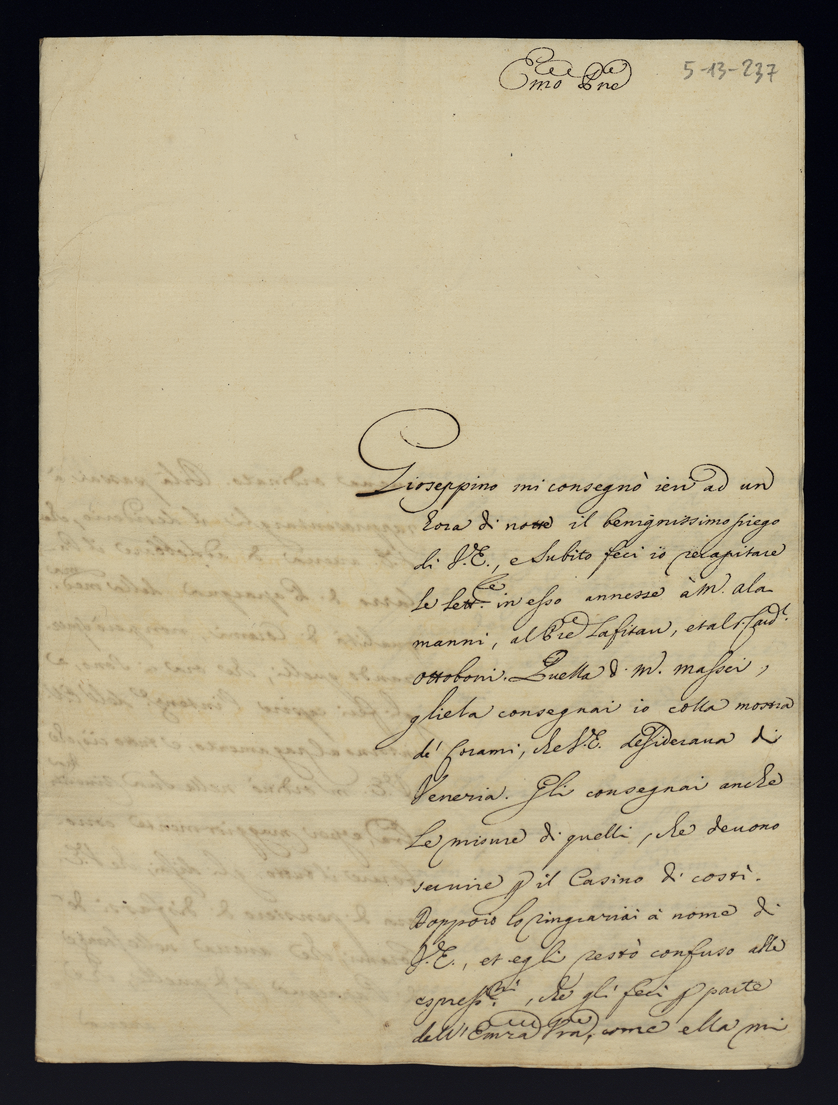 Em̃o Pñe
5-13-237
Gioseppino mi consegnò ieri ad un
hora di notte il benignissimo piego
di V.E., e subito feci io recapitare
le lett.re in esso annesse à M. Ala
manni, al Pre Lafitau, et al S. Card.l
Ottoboni. Quella d. M. Massei,
gliela consegnai io colla mostra
de' Corami, che V.E. desiderava di
Veneria. Gli consegnai anche
le misure di quelli, che devono
servire p il Casino di costì.
Doppoio lo ringratiai à nome di
V.E., et egli restò confuso alle
espress.ni, che gli feci p parte
dell'Em̃za Vr̃a, come ella mi